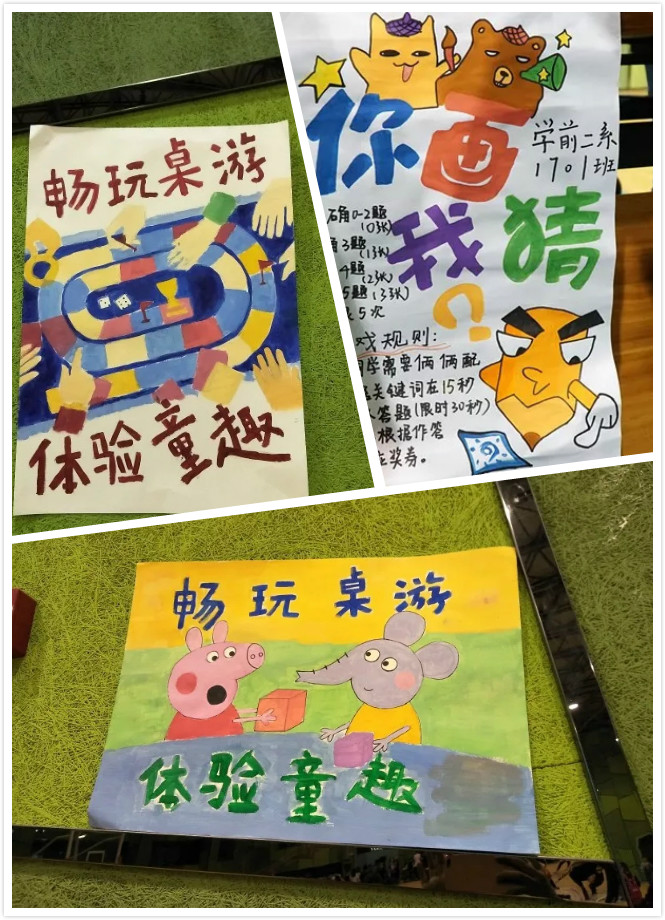 畅玩桌游
体验童趣
你画
我猜
学前二系
1701班
答角0-2题
(03张)
3题
(13张)
4题
(23张)
5题(33张)
5次
戏规则:
同学需要俩俩配
关键词在15秒
答题(限时30秒)
根据作答
奖券。
畅玩桌游
体验童趣